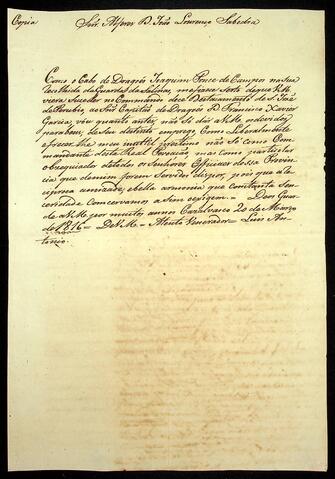 Copia Snr. Alferes D. João Lourenço Sebedra
Como o Cabo de Dragoes Joaquim Ponce de Campos na sua
recolhida da Guarda da Salina, me fizece serto de que V.Me.
viera Suceder no Commando dece Destacamento de S. João
de ao Snr. Capitão de Dragoes D. Francisco Xavier
Garcia, vou quanto antes não só dár a V.Me. os devidos
parabens, de seu destinto emprego, Como Liberalmente
oferecerlhe meu inutil prestimo não só como Com-
mandante deste Real Prezidio, mas como particular
obzequiador de todos os Senhores Officiaes dessa Provin-
cia que de mim forem Servidos dispor, pois que a Le-
gisma amizade, e bella armonia que constante Sou
conservamos a sim exigem = Deos Guar-
de a V.Me. por muitos annos Cazalvasco 20 de Março
de 1816 = De V.Me. = Atento Venerador = Luis An-
tonio =